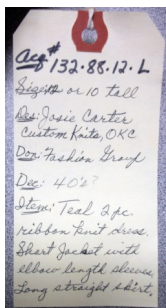 Acq# 132.88.12.L
Size: 8 or 10 tall
Des: Josie Carter
Custom Knits, OKC
Don: Fashion Group
Dec: 40's?
Item: Teal 2 pc.
ribbon knit dress.
Short Jacket with
elbow length sleeves,
Long straight skirt.